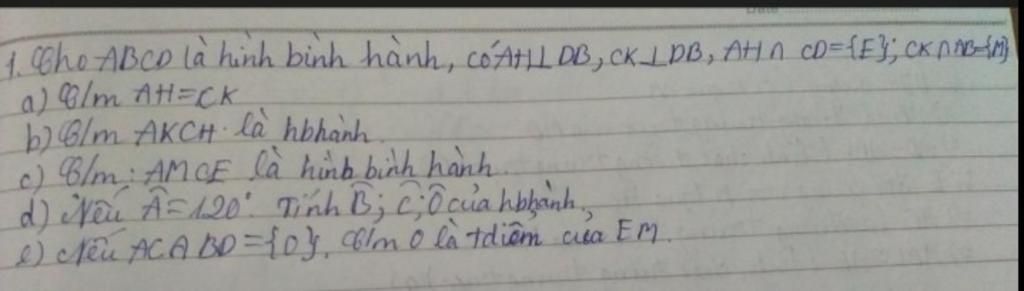 1. Cho ABCD là hình bình hành, có AH⊥DB, CK⊥DB, AH∩ CD={E}; CK∩AB={M}
a) C/m AH=CK
b) C/m AKCH là hbhành.
c) C/m: AMCE là hình bình hành.
d) Nếu Â=120° Tính B̂; Ĉ; D̂ của hbhành,
e) Nếu AC∩BD={O}, C/m O là tđiểm của EM.